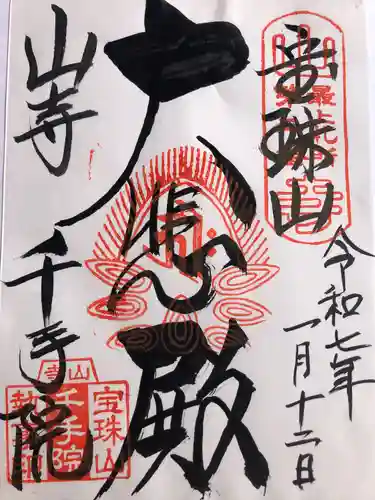 宝珠山
大悲殿
山寺
千手院
令和七年
一月十二日
最上
山寺
宝珠山
千手院